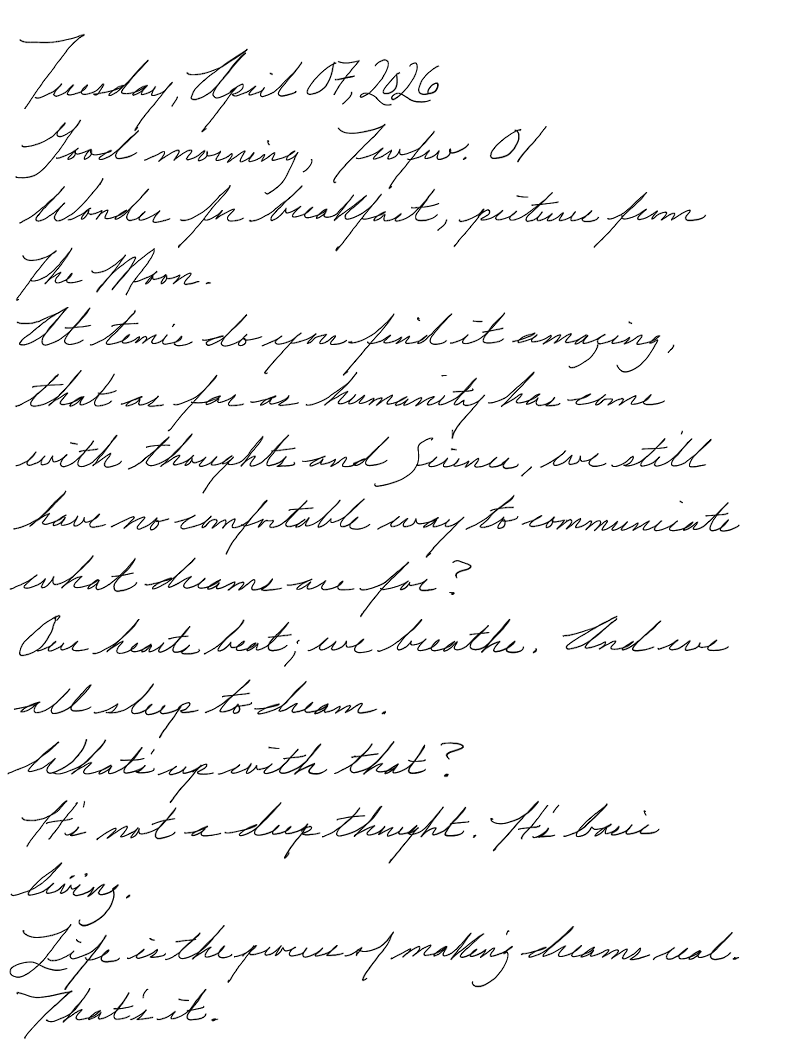 Tuesday, April 07, 2026
Good morning, Twfw. 01
Wonder for breakfast, pictures from
The Moon.
At temic do you find it amazing,
that as far as humanity has come
with thoughts and Science, we still
have no comfortable way to communicate
what dreams are for?
Our hearts beat; we breathe. And we
all sleep to dream.
What's up with that?
It's not a deep thought. It's basic
living.
Life is the process of making dreams real.
That's it.